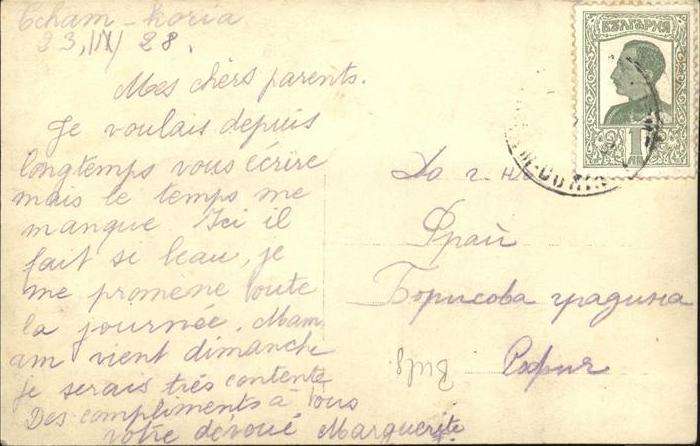 Tcham-Koria
23, IX/ 28.
Mes chers parents.
Je voulais depuis
longtemps vous écrire
mais le temps me
manque Ici il
fait si beau, je
me promene toute
la journée. Mam
an vient dimanche
Je serais très contente
Des compliments à tous
votre dévoué Marguerite
БЪЛГАРИЯ
1
До г. н
Фрай
Борисова градина
София
Bulg.